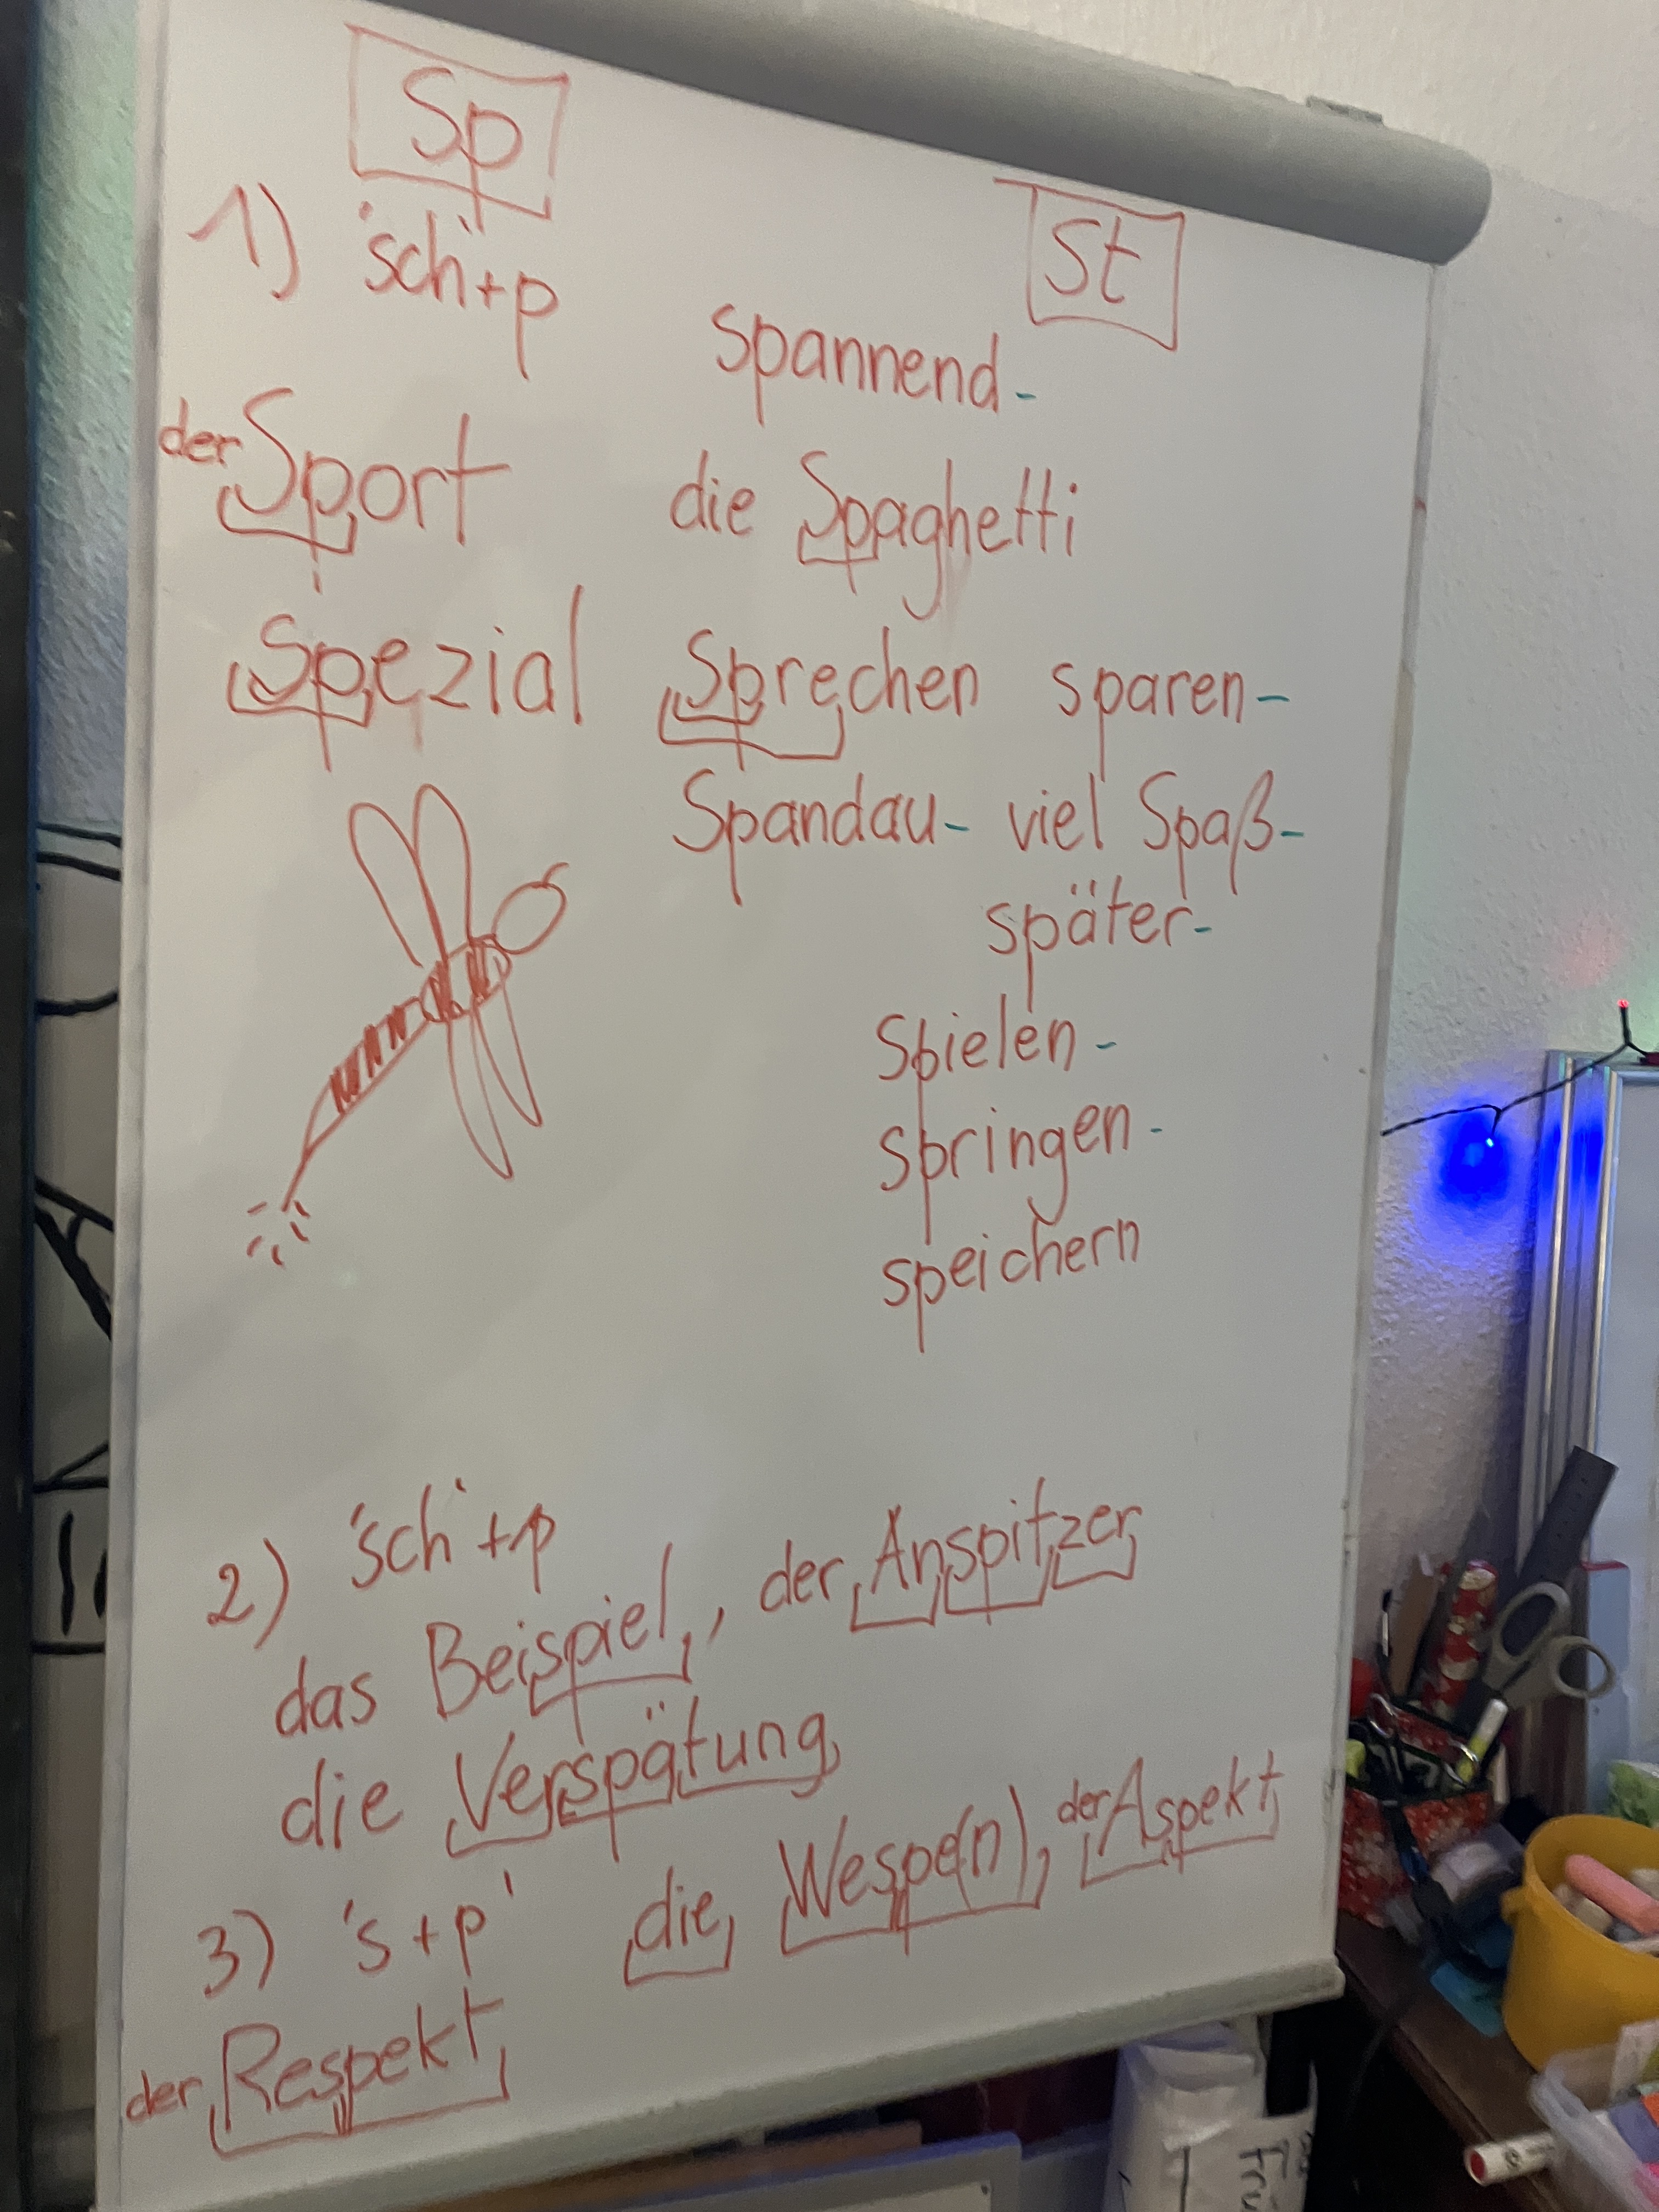 Sp
St
1) 'sch'+p
spannend-
der Sport
die Spaghetti
Spezial
Sprechen sparen-
Spandau- viel Spaß-
später-
Spielen-
springen-
speichern
2) 'sch'+p
das Beispiel, der Anspitzer
die Verspätung
3) 's+p' die Wespe(n), der Aspekt
der Respekt